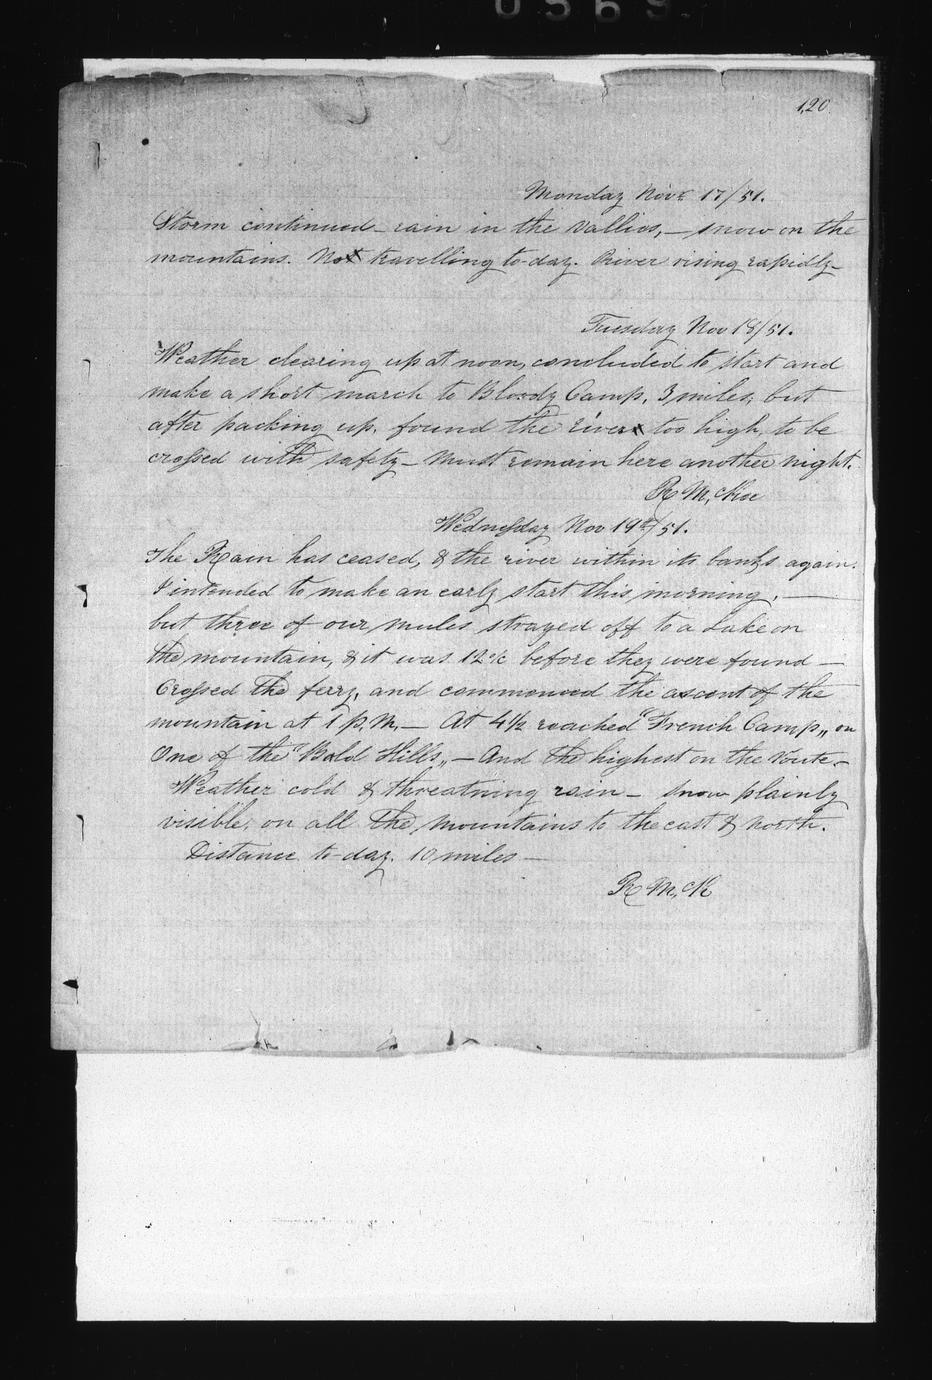 0569
120
Monday Nov. 17/51.
Storm continued - rain in the vallies, - snow on the
mountains. Not travelling to-day. River rising rapidly -
Tuesday Nov 18/51.
Weather clearing up at noon, concluded to start and
make a short march to Bloody Camp, 3 miles, but
after packing up, found the river too high, to be
crossed with safety - Must remain here another night.
R McKee
Wednesday Nov 19th/51.
The Rain has ceased, & the river within its banks again.
I intended to make an early start this morning, -
but three of our mules strayed off to a Lake on
the mountain, & it was 12 before they were found -
Crossed the ferry, and commenced the ascent of the
mountain at 1 P.M. - At 4½ reached "French Camp" on
One of the "Bald Hills" - And the highest on the route -
Weather cold & threatning rain - Snow plainly
visible, on all the mountains to the east & north.
Distance to-day. 10 miles -
R McK